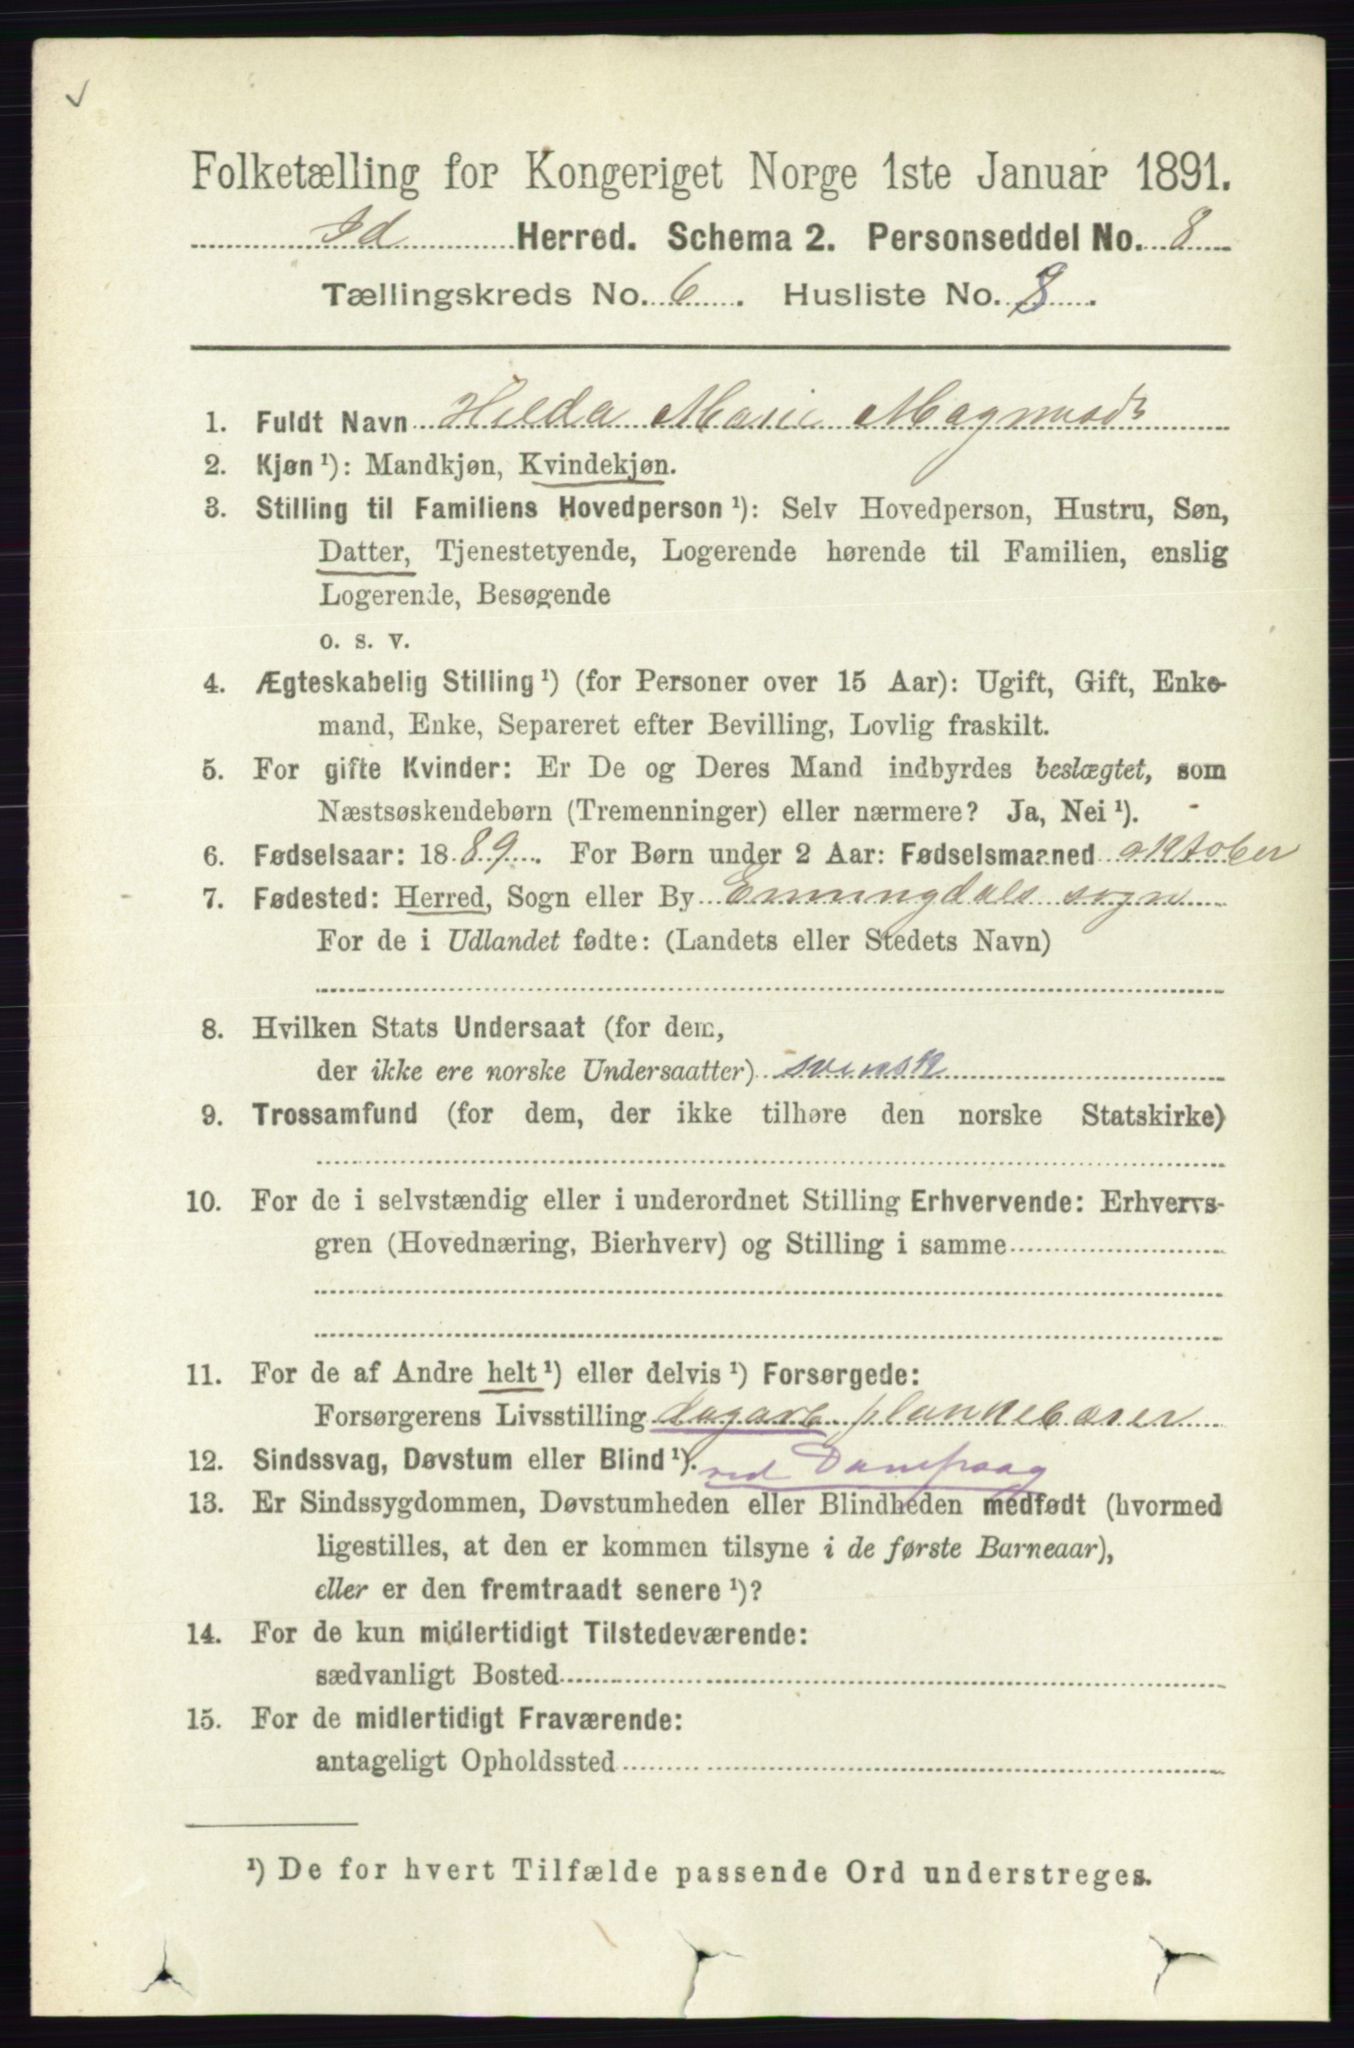 Folketælling for Kongeriget Norge 1ste Januar 1891.
Id Herred. Schema 2. Personseddel No. 8
Tællingskreds No. 6. Husliste No. 8.
1. Fuldt Navn Hilda Marie Magnusdr
2. Kjøn ¹): Mandkjøn, Kvindekjøn.
3. Stilling til Familiens Hovedperson ¹): Selv Hovedperson, Hustru, Søn,
Datter, Tjenestetyende, Logerende hørende til Familien, enslig
Logerende, Besøgende
o. s. v.
4. Ægteskabelig Stilling ¹) (for Personer over 15 Aar): Ugift, Gift, Enke-
mand, Enke, Separeret efter Bevilling, Lovlig fraskilt.
5. For gifte Kvinder: Er De og Deres Mand indbyrdes beslægtet, som
Næstsøskendebørn (Tremenninger) eller nærmere? Ja, Nei ¹).
6. Fødselsaar: 1889. For Børn under 2 Aar: Fødselsmaaned oktober
7. Fødested: Herred, Sogn eller By Enningdals sogn
For de i Udlandet fødte: (Landets eller Stedets Navn)
8. Hvilken Stats Undersaat (for dem,
der ikke ere norske Undersaatter) svensk
9. Trossamfund (for dem, der ikke tilhøre den norske Statskirke)
10. For de i selvstændig eller i underordnet Stilling Erhvervende: Erhvervs-
gren (Hovednæring, Bierhverv) og Stilling i samme
11. For de af Andre helt ¹) eller delvis ¹) Forsørgede:
Forsørgerens Livsstilling dagarb. plankebærer
12. Sindssvag, Døvstum eller Blind ¹). ved Dampsag
13. Er Sindssygdommen, Døvstumheden eller Blindheden medfødt (hvormed
ligestilles, at den er kommen tilsyne i de første Barneaar),
eller er den fremtraadt senere ¹)?
14. For de kun midlertidigt Tilstedeværende:
sædvanligt Bosted
15. For de midlertidigt Fraværende:
antageligt Opholdssted
¹) De for hvert Tilfælde passende Ord understreges.